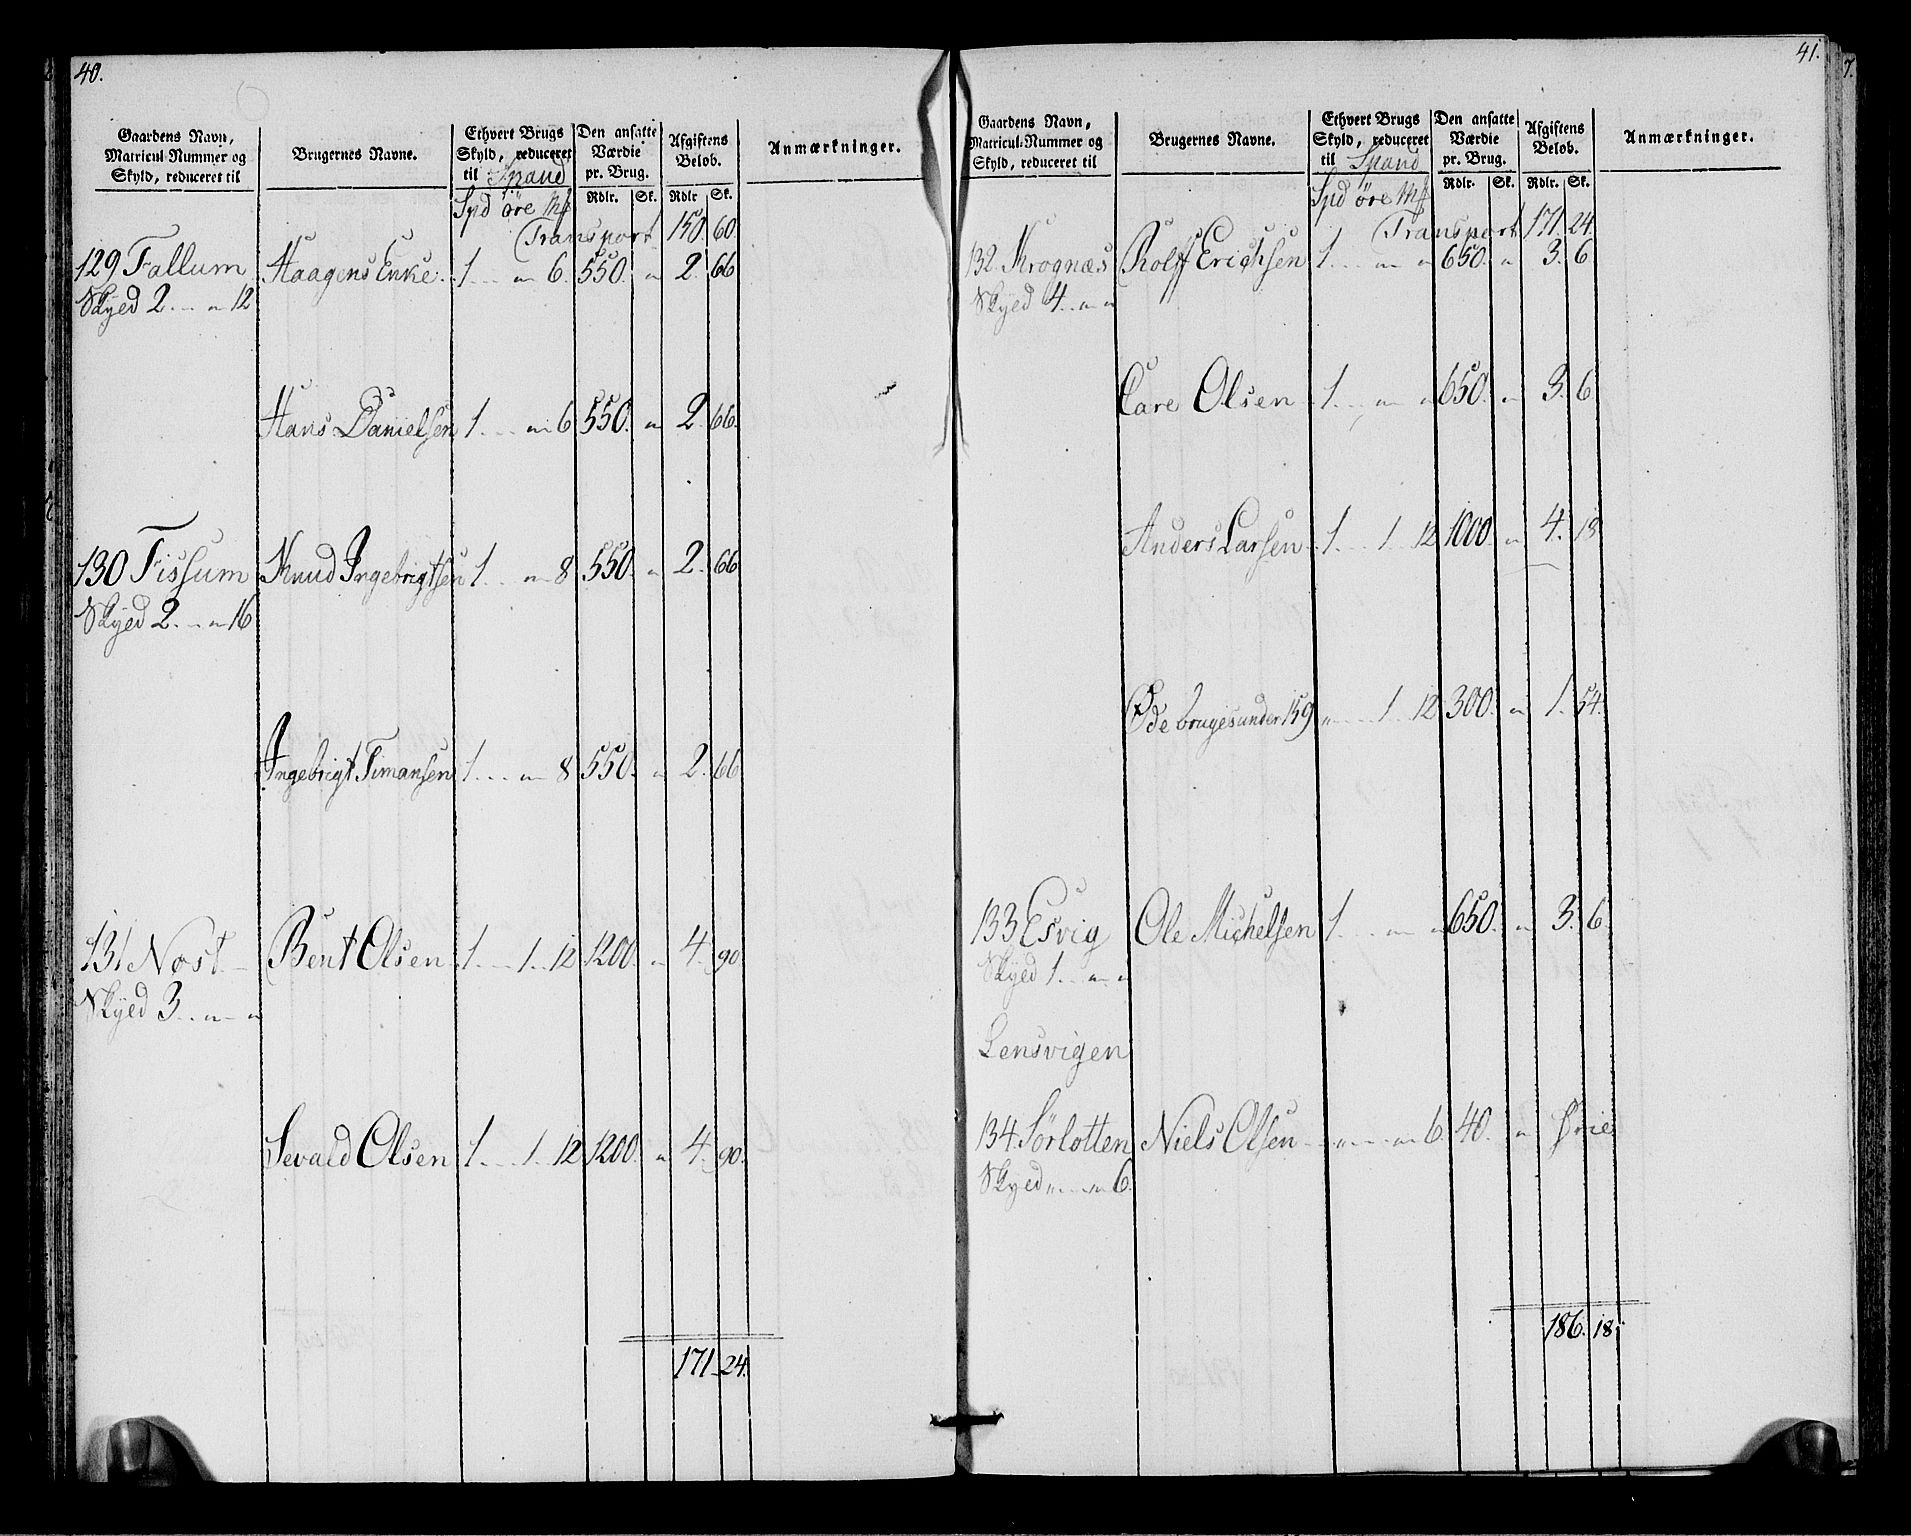 40.
Gaardens Navn, Matricul-Nummer og Skyld, reduceret til
Brugernes Navne.
Ethvert Brugs Skyld, reduceret til Spand
Den ansatte Værdie pr. Brug.
Afgiftens Beløb.
Anmærkninger.
Rdlr. Sk. Rdlr Sk.
Spd øre Mk
Transport 150. 60
129 Fallum Haagens Enke. 1 . . . „ 6. 550. „ 2. 66
Skyed 2 . . . „ 12
Hans Danielsen 1 . . . „ 6 550. „ 2. 66.
130 Fissum Knud Ingebrigtsen 1 . . . „ 8 550. „ 2. 66
Skyed 2 . . . „ 16
Ingebrigt Timansen 1 . . . „ 8 550. „ 2. 66
131 Nost Bent Olsen 1 . . . 1 . . 12 1200. „ 4. 90
Skyed 3 . . . „ „
Sevald Olsen 1 . . . 1 . . 12 1200. „ 4. 90.
171. 24.
41.
7.
Gaardens Navn, Matricul-Nummer og Skyld, reduceret til
Brugernes Navne.
Ethvert Brugs Skyld, reduceret til Spand
Den ansatte Værdie pr. Brug.
Afgiftens Beløb.
Anmærkninger.
Rdlr. Sk. Rdlr. Sk.
Spd øre Mk
Transport 171. 24.
132. Krognæs Rolff Erichsen 1 . . . „ „ 650. „ 3. 6
Skyed 4 . . „ „
Care Olsen 1 . . . „ „ 650. „ 3. 6.
Anders Larsen 1 . . . 1 . . 12 1000. „ 4. 18
Øde bruges under 159 „ . . . 1 . . 12 300. „ 1. 54.
133 Esvig Ole Michelsen 1 . . . „ „ 650. „ 3. 6
Skyed 1 . . . „ „
Lensvigen
134. Sørlotten Niels Olsen „ . . . „ 6. 40. „ Frie
Skyed „ . . . „ 6.
186. 18.